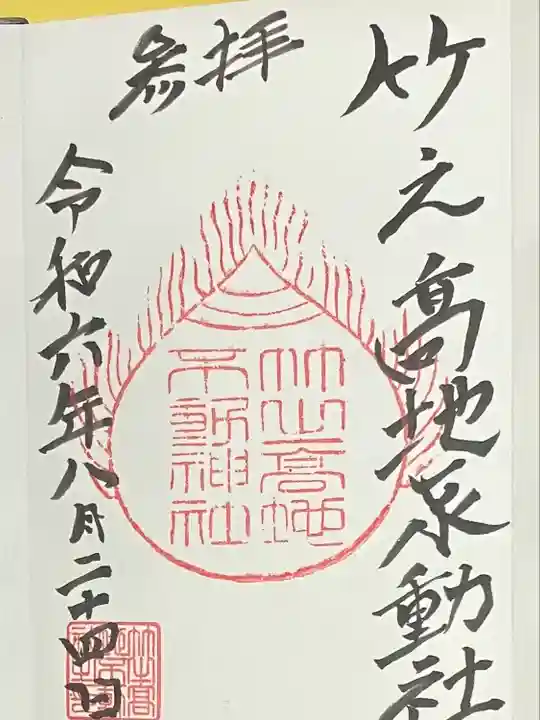 竹之髙地不動社
参拝
竹之高地
不動神社
令和六年八月二十四日